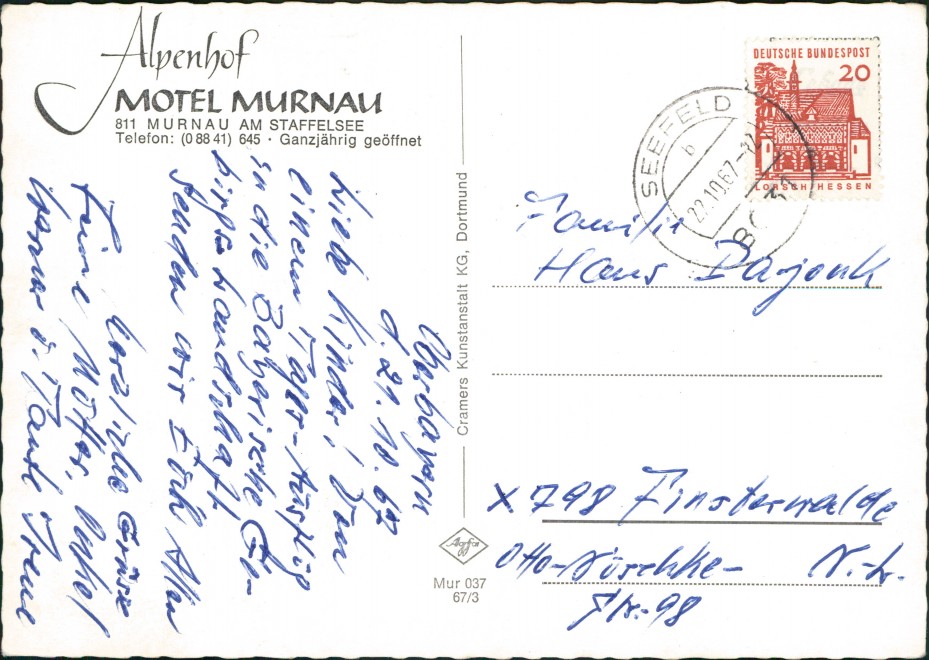 Alpenhof
MOTEL MURNAU
811 MURNAU AM STAFFELSEE
Telefon: (0 88 41) 645 · Ganzjährig geöffnet
Oberbayern
d. 21. 10. 67
Liebe Kinder! Von
einem Tages-Ausflug
in die Bayerische Ge-
birgslandschaft
senden wir Euch Allen
herzliche Grüsse
Eure Mutter, Onkel
Werner u. Tante Irene
Cramers Kunstanstalt KG, Dortmund
Agfa
Mur 037
67/3
DEUTSCHE BUNDESPOST
20
LORSCH/HESSEN
SEEFELD
b
22.10.67-12
Familie
Hans
X 798 Finsterwalde
Otto- N.-L.
Str. 98